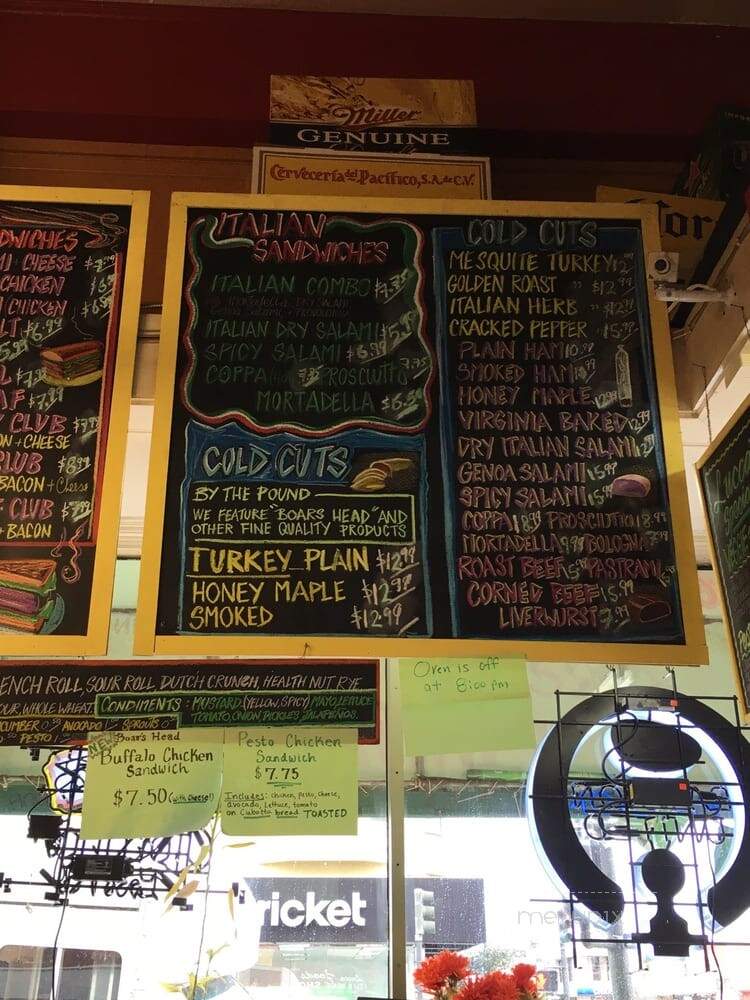 Miller
GENUINE
Cervecería del Pacífico, S.A. de C.V.
Cor
DWICHES
CHEESE
CHICKEN
CHICKEN
LT $6.99
CLUB
ON + CHEESE
CLUB $8.99
BACON + Cheese
CLUB
+ BACON
ITALIAN
SANDWICHES
ITALIAN COMBO $7.75
ITALIAN DRY SALAMI
SPICY SALAMI $6.99
COPPA PROSCIUTTO 7.75
MORTADELLA
COLD CUTS
BY THE POUND
WE FEATURE "BOARS HEAD" AND
OTHER FINE QUALITY PRODUCTS
TURKEY PLAIN $12.99
HONEY MAPLE $12.99
SMOKED $12.99
COLD CUTS
MESQUITE TURKEY
GOLDEN ROAST " $12.99
ITALIAN HERB " $12.99
CRACKED PEPPER
PLAIN HAM
SMOKED HAM
HONEY MAPLE
VIRGINIA BAKED 12.99
DRY ITALIAN SALAMI
GENOA SALAMI 15.99
SPICY SALAMI 15.99
COPPA 18.99 PROSCIUTTO 18.99
MORTADELLA 9.99 BOLOGNA
ROAST BEEF PASTRAMI
CORNED BEEF 15.99
LIVERWURST 7.99
Lucca
ENCH ROLL, SOUR ROLL, DUTCH CRUNCH, HEALTH NUT, RYE,
OUR, WHOLE WHEAT. CONDIMENTS: MUSTARD (YELLOW, SPICY) MAYO, LETTUCE
TOMATO, ONION, PICKLES, JALAPEÑOS.
CUMBER AVOCADO SPROUTS
PESTO
Oven is off
at 8:00 pm
NEW Boar's Head
Buffalo Chicken
Sandwich
$7.50 (with cheese!)
Pesto Chicken
Sandwich
$7.75
Includes: chicken, pesto, cheese,
avocado, lettuce, tomato
on Ciabatta bread TOASTED
ricket